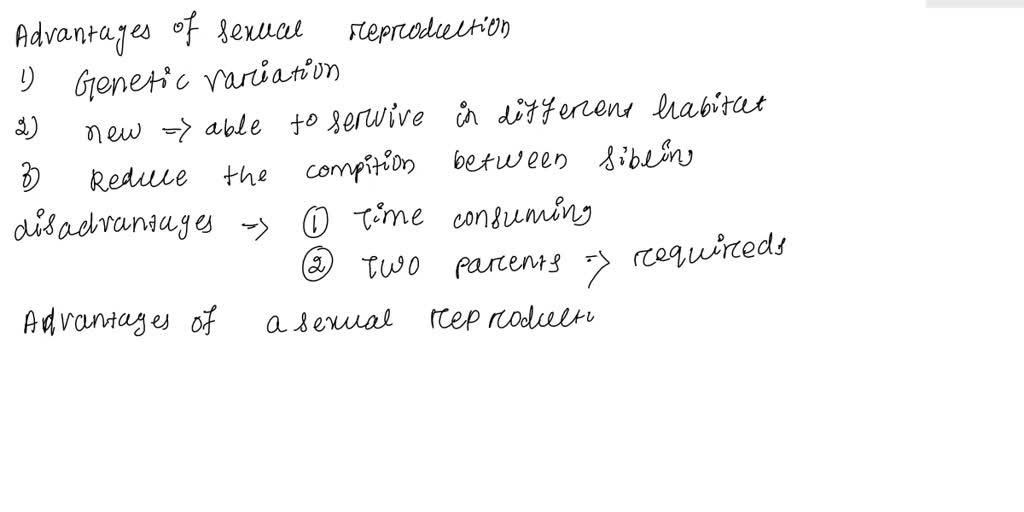 Advantages of sexual reproduction
1) Genetic variation
2) new => able to servive in different habitat
3) Reduce the compition between sibeling
disadvantages => ① Time consuming
② Two parents => requireds
Advantages of asexual reproducti